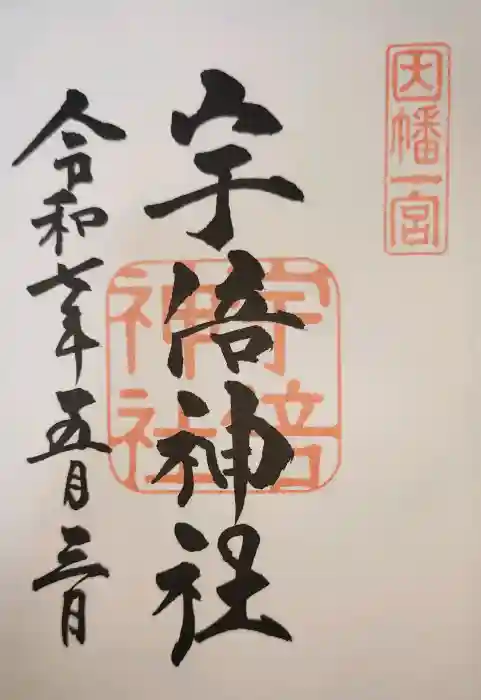 因幡一宮
宇倍神社
宇倍
神社
令和七年五月三日